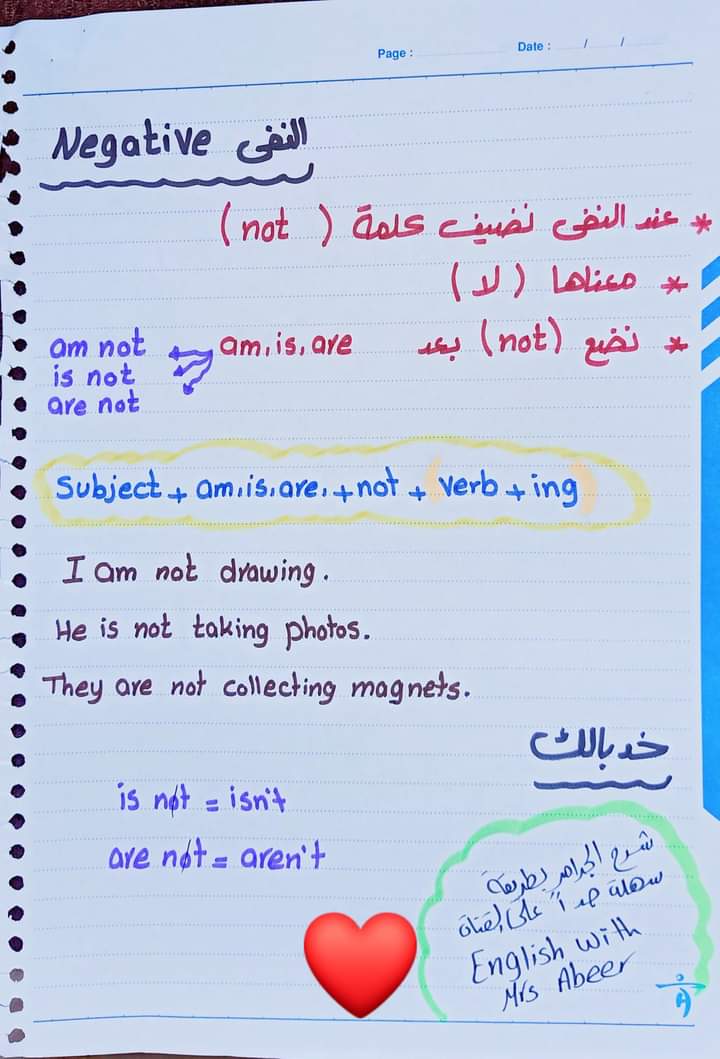 Page :
Date :    /    /
Negative النفى
* عند النفى نضيف كلمة ( not )
* معناها ( لا )
* نضع (not) بعد am, is, are
am not
is not
are not
Subject + am, is, are, + not + ( verb + ing )
I am not drawing.
He is not taking photos.
They are not collecting magnets.
خد بالك
is not = isn't
are not = aren't
شرح الجرامر بطريقة
سهلة جداً على القناة
English with
Mrs Abeer